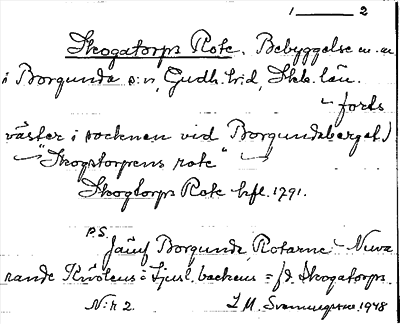 1 ——— 2
Skogatorps Rote. Bebyggelse m.m
i Borgunda s:n, Gudh. hrd, Skb. län.
forts
väster i socknen vid Borgundaberget)
"Skogstorpens rote"
Skogtorps Rote hfl. 1791.
P.S.
Jämf Borgunda, Rotarne Nuva
rande Kivlens i Ljusl. backens = fd. Skogatorps.
N:r 2.
1948